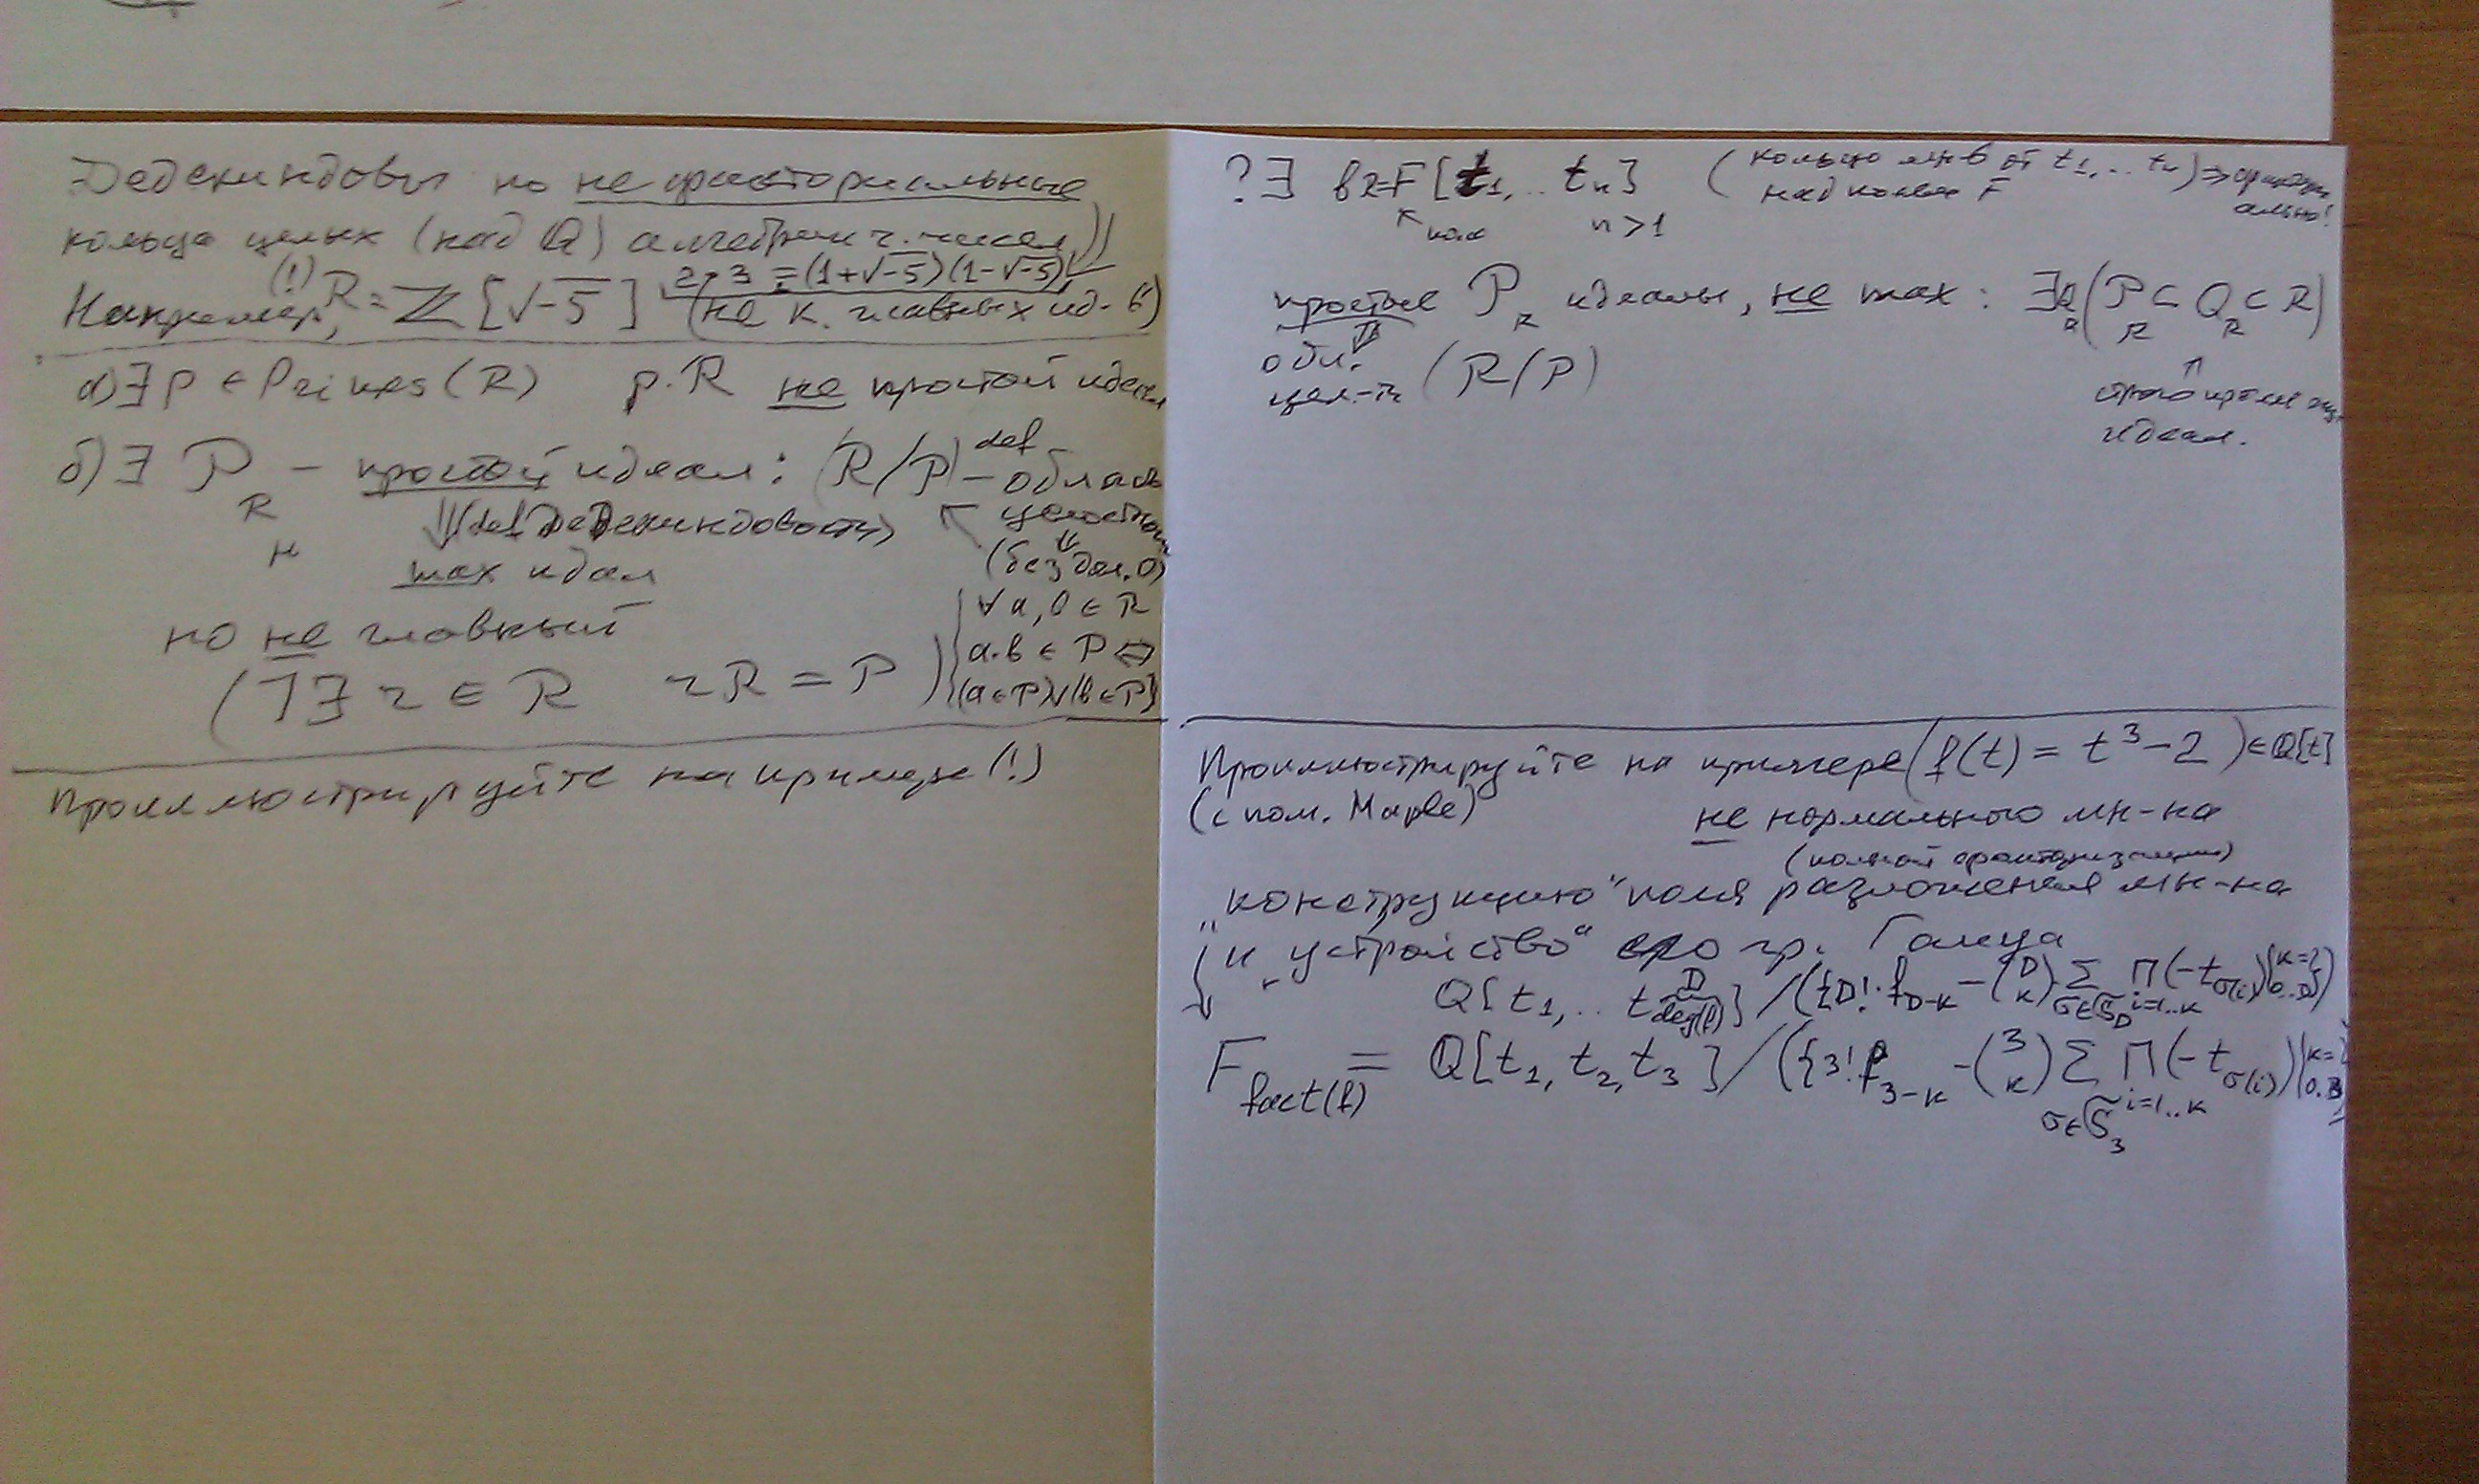 Дедекиндовы но не факториальные
кольца целых (над Q) алгебраич. чисел
Например, (!) R = ℤ[√-5] 2·3 = (1+√-5)(1-√-5)
(не к. главных ид-в)
а) ∃ p ∈ Primes(R) p·R не простой идеал
б) ∃ P_R — простой идеал: (R/P) def — область
⇓ (def Дедекиндовости) целостности
max идеал (без дел. 0)
но не главный ∀ a, b ∈ R
a·b ∈ P ⇔
(¬∃ r ∈ R rR = P) (a∈P)∨(b∈P)
Проиллюстрируйте на примере (!)
?∃ в R=F[t₁,.. tₙ] (кольцо мн-в от t₁,.. tₙ) ⇒ факториально!
поле n>1 над полем F
простые P_R идеалы, не max: ∃Q_R (P_R ⊂ Q_R ⊂ R)
⇓
обл. цел-ти (R/P)
↑
идеал.
Проиллюстрируйте на примере (f(t) = t³-2) ∈ Q[t]
(с пом. Maple) не нормального мн-на
(полной факторизации)
"конструкцию" поля разложения мн-на
и "устройство" его гр. Галуа
Q[t₁,.. t_D] / ({D!·f_{D-k} - (D k) Σ_{σ∈S_D} Π_{i=1..k} (-t_{σ(i)}) | k=0..D})
deg(f)
F_{fact(f)} = Q[t₁, t₂, t₃] / ({3! f_{3-k} - (3 k) Σ_{σ∈S₃} Π_{i=1..k} (-t_{σ(i)}) | k=0..3